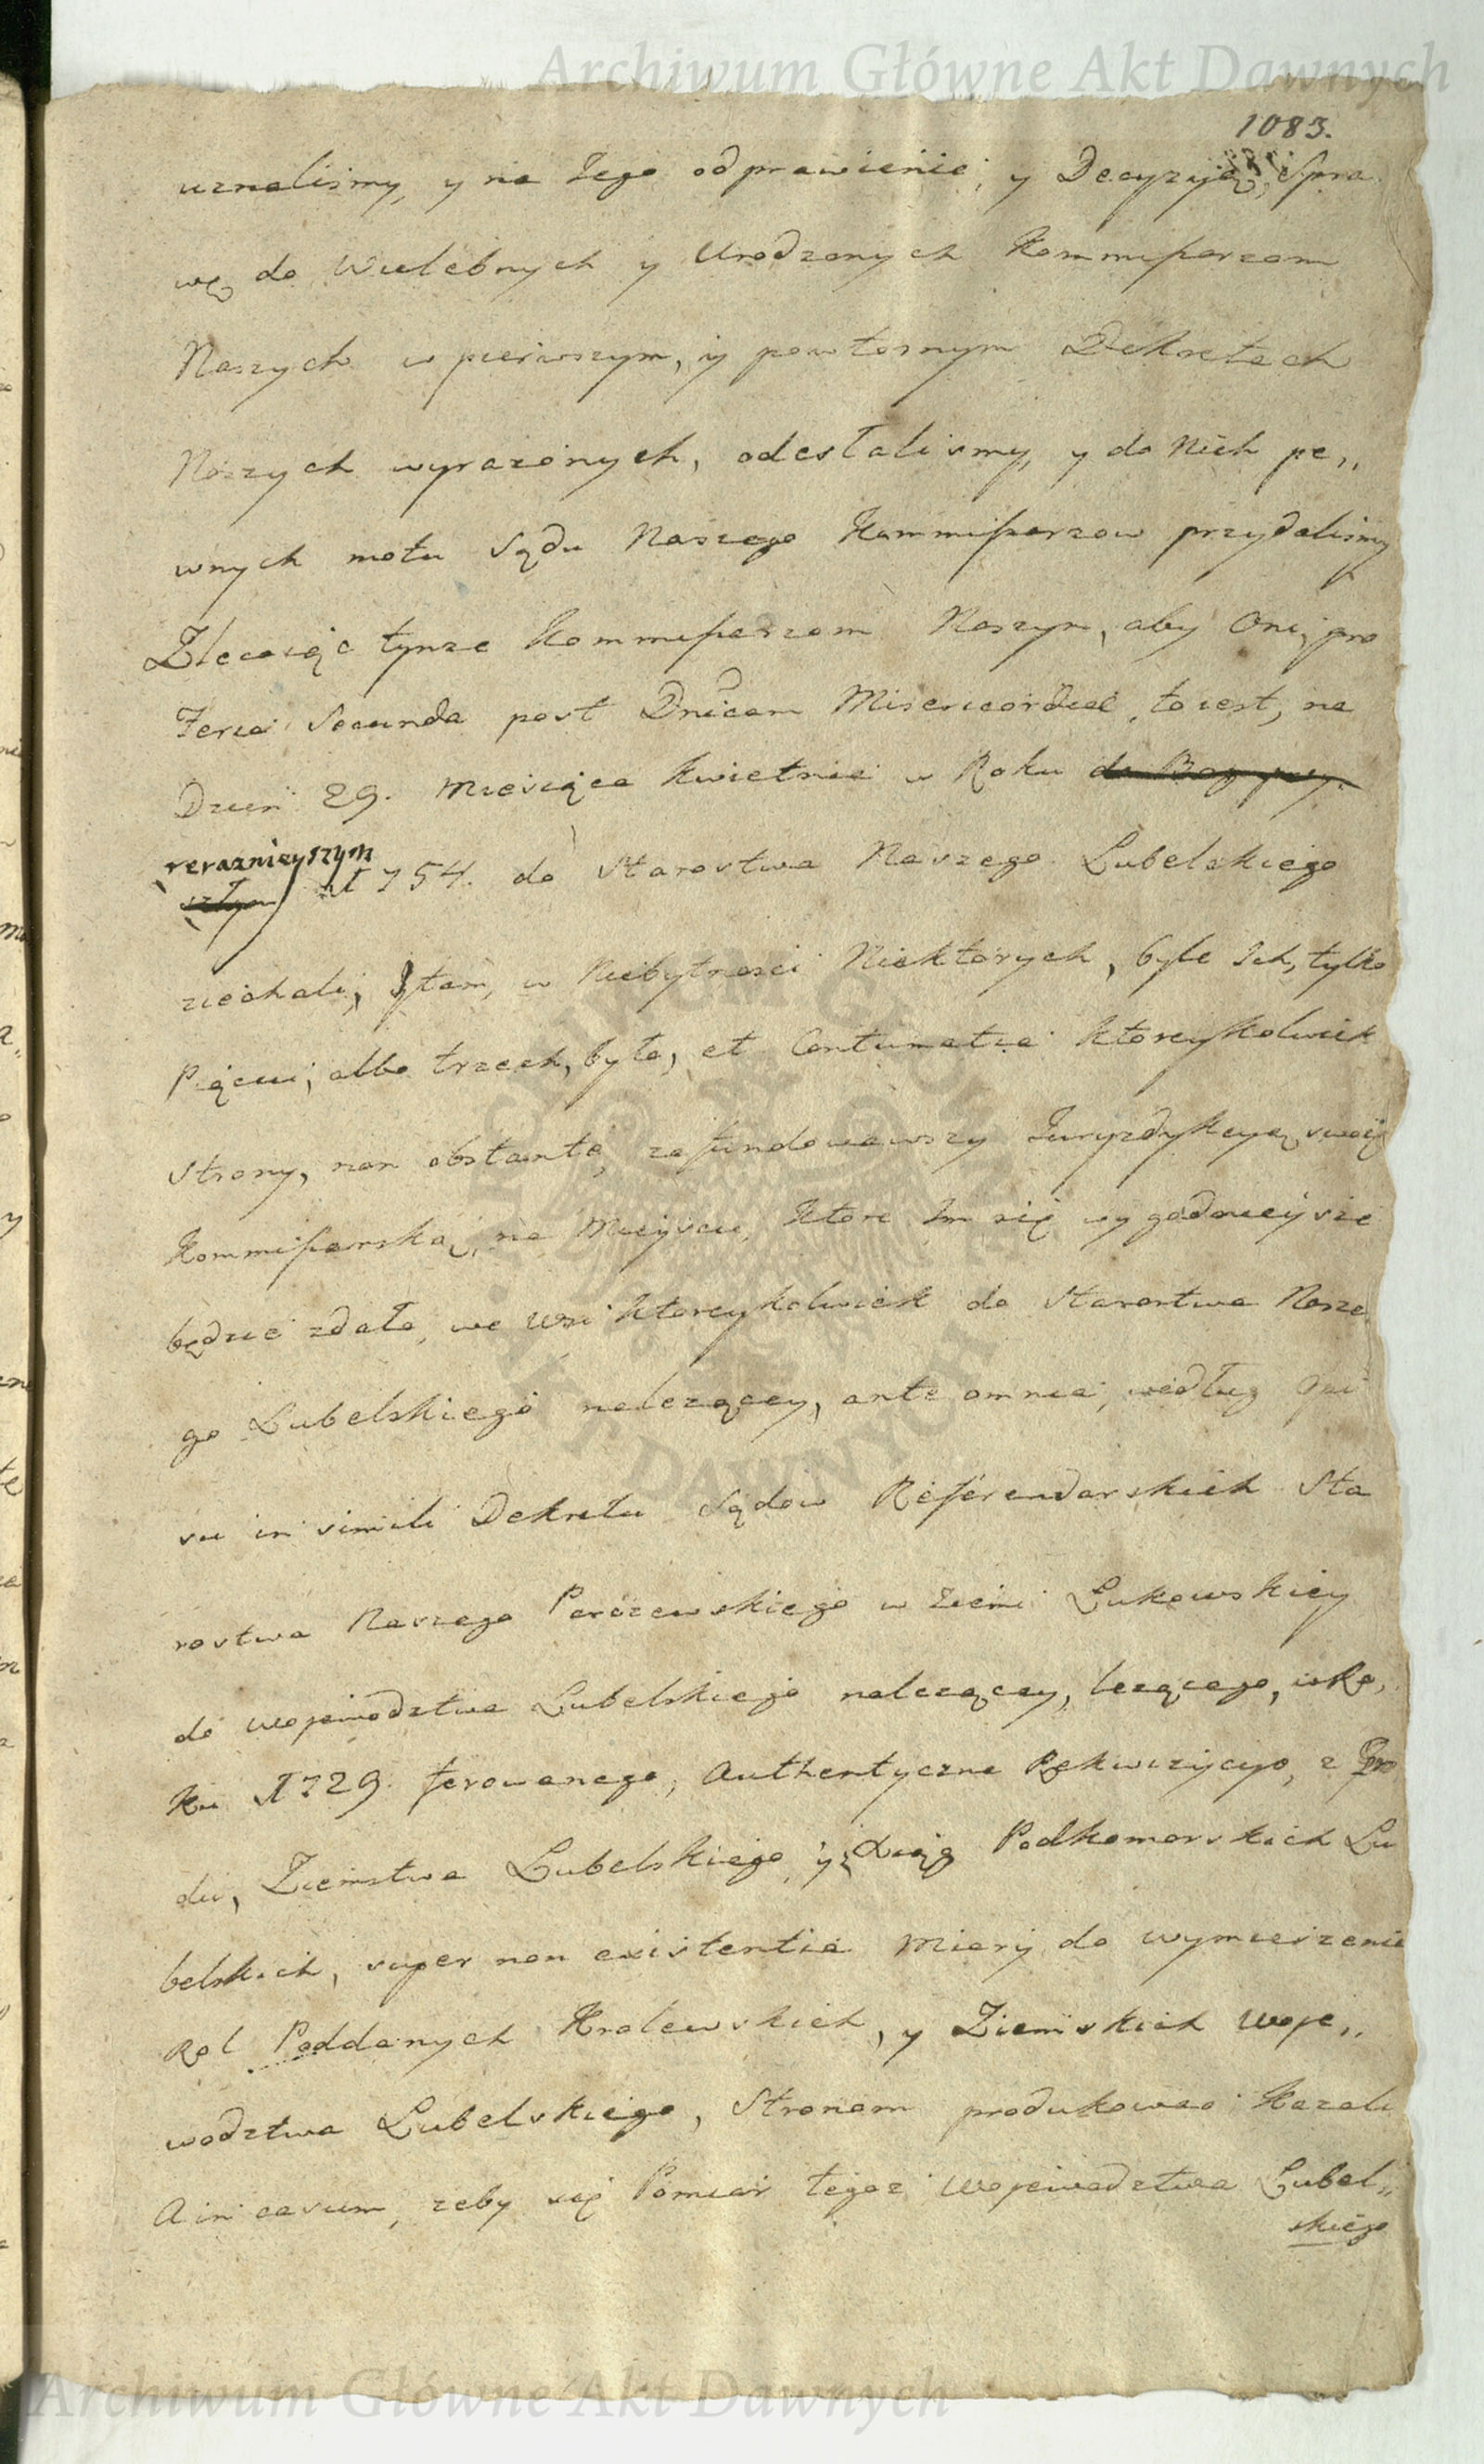 Archiwum Główne Akt Dawnych
1083.
uznalismy, y na Jego odprawienie, y Decyzyią, Spra
wę do Wielebnych y Urodzonych Kommissarzom
Naszych w pierwszym, y powtornym Dekretach
Naszych wyrazonych, odesłalismy, y do Nich pe„
wnych motu Sądu Naszego Kommissarzow przydalismy
Zlecaiąc tymze Kommissarzom Naszym, aby Oni pro
Feria Secunda post Dnicam Misericordiae, to iest, na
Dzien 29. Miesiąca Kwietnia w Roku
terazniejszym 1754. do Starostwa Naszego Lubelskiego
ziechali, y tam, w Niebytnosci Niektorych, byle Ich, tylko
Pięciu, albo trzech, było, et Contumatia Ktoreykolwiek
Strony, non obstante, zafundowawszy Juryzdykcyą swoię
Kommissarską, na Mieyscu, Ktore Im się wygodnieysze
będzie zdało, we Wsi Ktoreykolwiek do Starostwa Nasze
go Lubelskiego nalezącey, ante omnia, według Opi
su in simili Dekretu Sądow Referendarskich Sta
rostwa Naszego Parczewskiego w Ziemi Łukowskiey
do Wojewodztwa Lubelskiego nalezącey, lezącego, w Ro„
ku 1729. ferowanego, Authentyczne Rekwizycye, z Gro
du, Ziemstwa Lubelskiego, y z Xiąg Podkomorskich Lu
belskich, super non existentia Miary do wymierzenia
Rol Poddanych Krolewskich, y Ziemskich Woje„
wodztwa Lubelskiego, Stronom produkować Kazali
A in casum, zeby się Pomiar tegoz Wojewodztwa Lubel„
skiego
Archiwum Główne Akt Dawnych